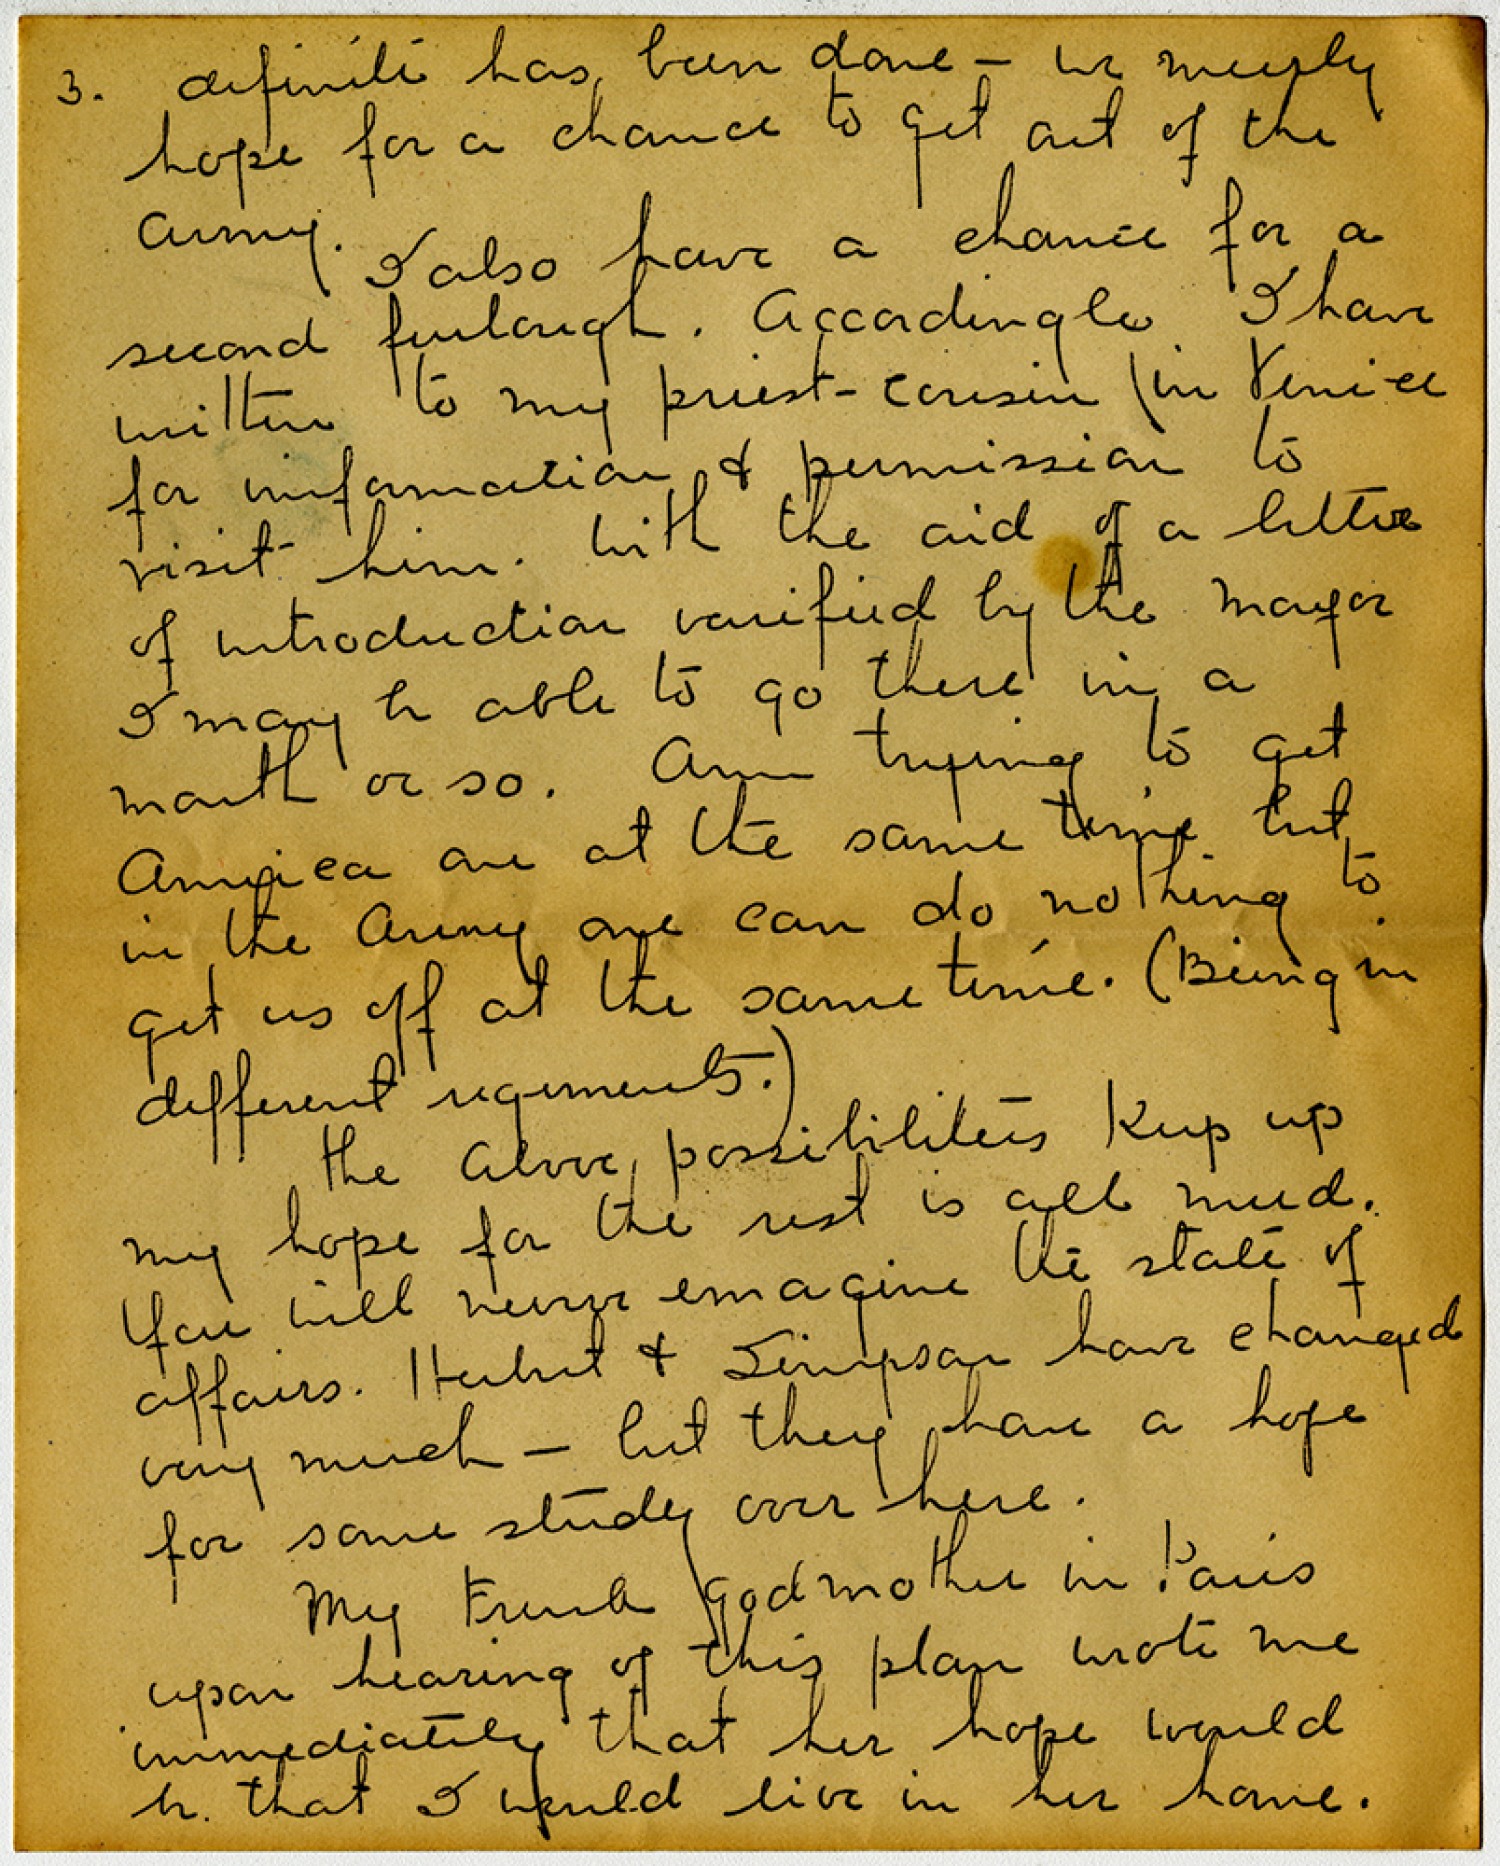 3. definite has been done – we merely
hope for a chance to get out of the
Army.
I also have a chance for a
second furlough. Accordingly I have
written to my priest-cousin (in Venice
for information & permission to
visit him. With the aid of a letter
of introduction varified by the mayor
I may be able to go there in a
month or so. Am trying to get
America at the same time but
in the Army one can do nothing to
get us off at the same time. (Being in
different regiments.)
The above possibilities keep up
my hope for the rest is all mud.
You will never emagine the state of
affairs. Herbert & Simpson have changed
very much – but they have a hope
for some study over here.
My French godmother in Paris
upon hearing of this plan wrote me
immediately that her hope would
be that I would live in her home.